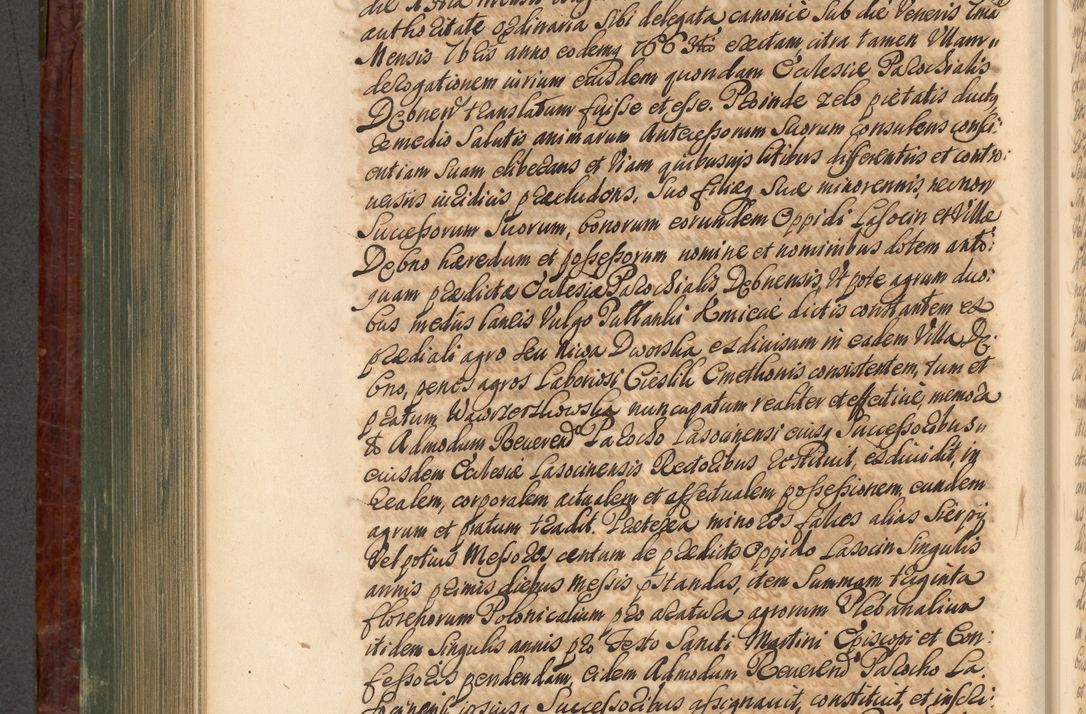 authoritate ordinaria Sibi delegata canonice Sub die Veneris
Mensis 7bris anno eodemq erectam citra tamen Ullam
derogationem iurium eiusdem quondam Ecclesiæ Parochialis
Dębnen translatum fuisse et esse. Proinde zelo pietatis ductq
remedio Salutis animarum Antecessorum Suorum consulens consci
entiam Suam liberans et Viam quibusvis litibus differentiis et contro:
versiis iuridicis præcludens, Suo filieq Suæ minorennis, necnon
Successorum Suorum, bonorum eorundem Oppidi Lasocin et Villæ
Debno hæredum et possessorum nomine et nominibus dotem anti:
quam prædictæ Ecclesiæ Parochialis Debnensis, Ut pote agrum duo:
bus mediis laneis Vulgo Pullanki Kmiece dictis constantem ex
prædiali agro seu Niwa Dworska exdivisam in eadem Villa De:
bno, penes agros Laboriosi Cieslik Cmethonis consistentem, tum et
pratum nuncupatum realiter et effective memora
to Admodum Reverend Parocho Lasocinensi eiusq Successoribus
eiusdem Ecclesiæ Lasocinensis Rectoribus restituit, exdividit, in
realem, corporalem actualem et affectualem possessionem, eundem
agrum et pratum tradit. Præterea minores falces alias Sierpy
Vel potius Messores centum de prædicto Oppido Lasocin Singulis
annis primis diebus Messis pstandas, item Summam triginta
florenorum Polonicalium pro aratura agrorum Plebanalium
itidem Singulis annis pro Festo Sancti Martini Episcopi et Con:
fessoris pendendam, eidem Admodum Reverend Parocho La
Successoribus assignavit, constituit, et